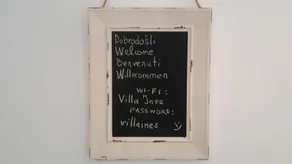 Dobrodošli
Welcome
Benvenuti
Willkommen
WI-FI:
Villa Ines
PASSWORD:
villaines